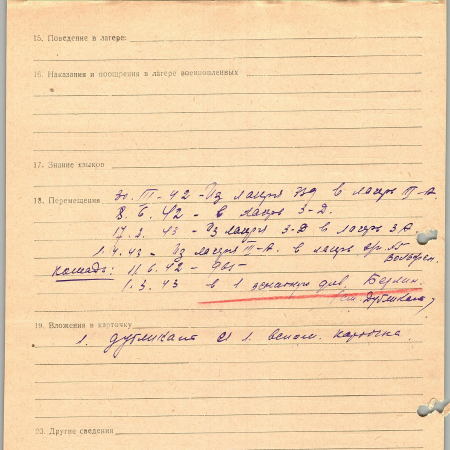 15. Поведение в лагере:
16. Наказания и поощрения в лагере военнопленных
17. Знание языков
18. Перемещения 30. III - 42 - Из лагеря в лагерь III-A.
8. 6. 42 - в лагерь 3-D.
17. 3. 43 - Из лагеря 3-D в лагерь 3A.
1. 4. 43 - Из лагеря III-A. в лагерь
Команды: 11. 6. 42 - 965 -
1. 3. 43 в 1 зенитную див. Берлин.
(см. Дубликат)
19. Вложения в карточку
1. дубликат и 1. вспом. карточка.
20. Другие сведения